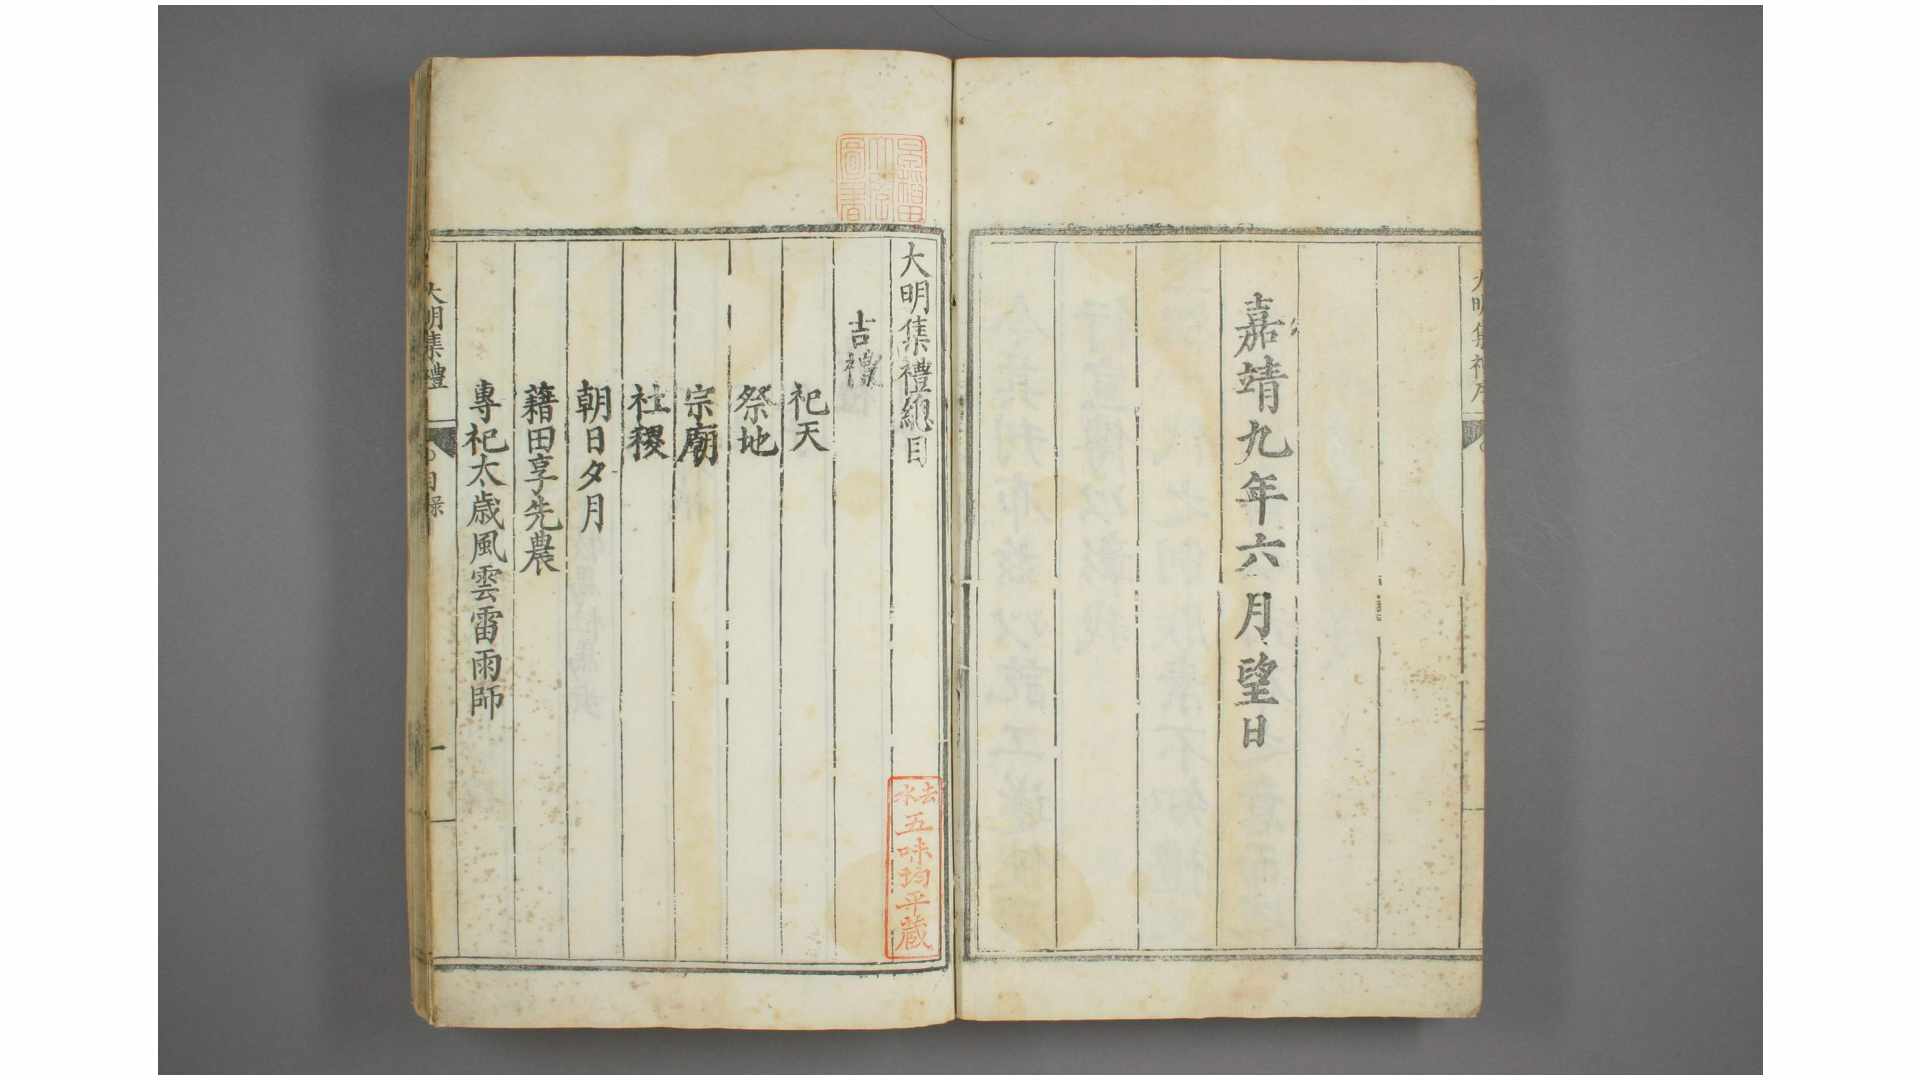 大明集禮序
二
嘉靖九年六月望日
大明集禮總目
吉禮
祀天
祭地
宗廟
社稷
朝日夕月
藉田享先農
專祀太歳風雲雷雨師
大明集禮
目録
一
去水
五味均平蔵